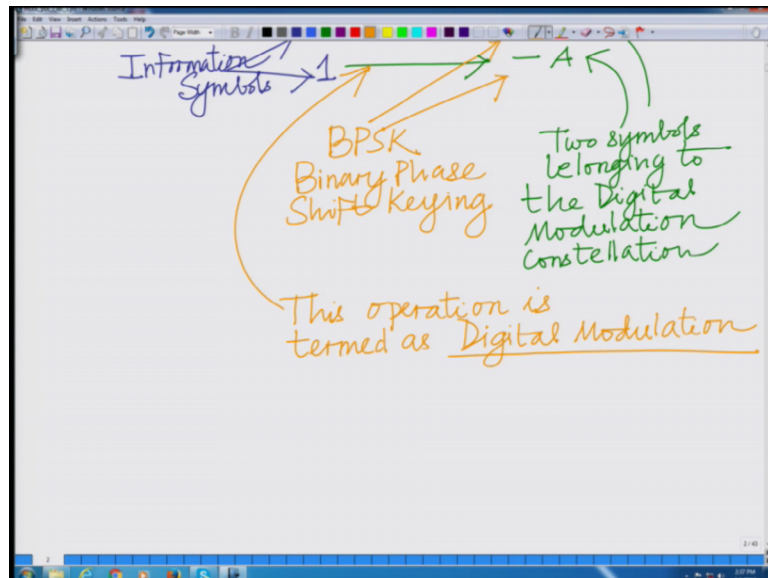 File Edit View Insert Actions Tools Help
Page Width
B I
Information → 1 → - A
Symbols
BPSK
Binary Phase
Shift Keying
Two symbols
belonging to
the Digital
Modulation
Constellation
This operation is
termed as Digital Modulation
2 / 43
2
2:37 PM